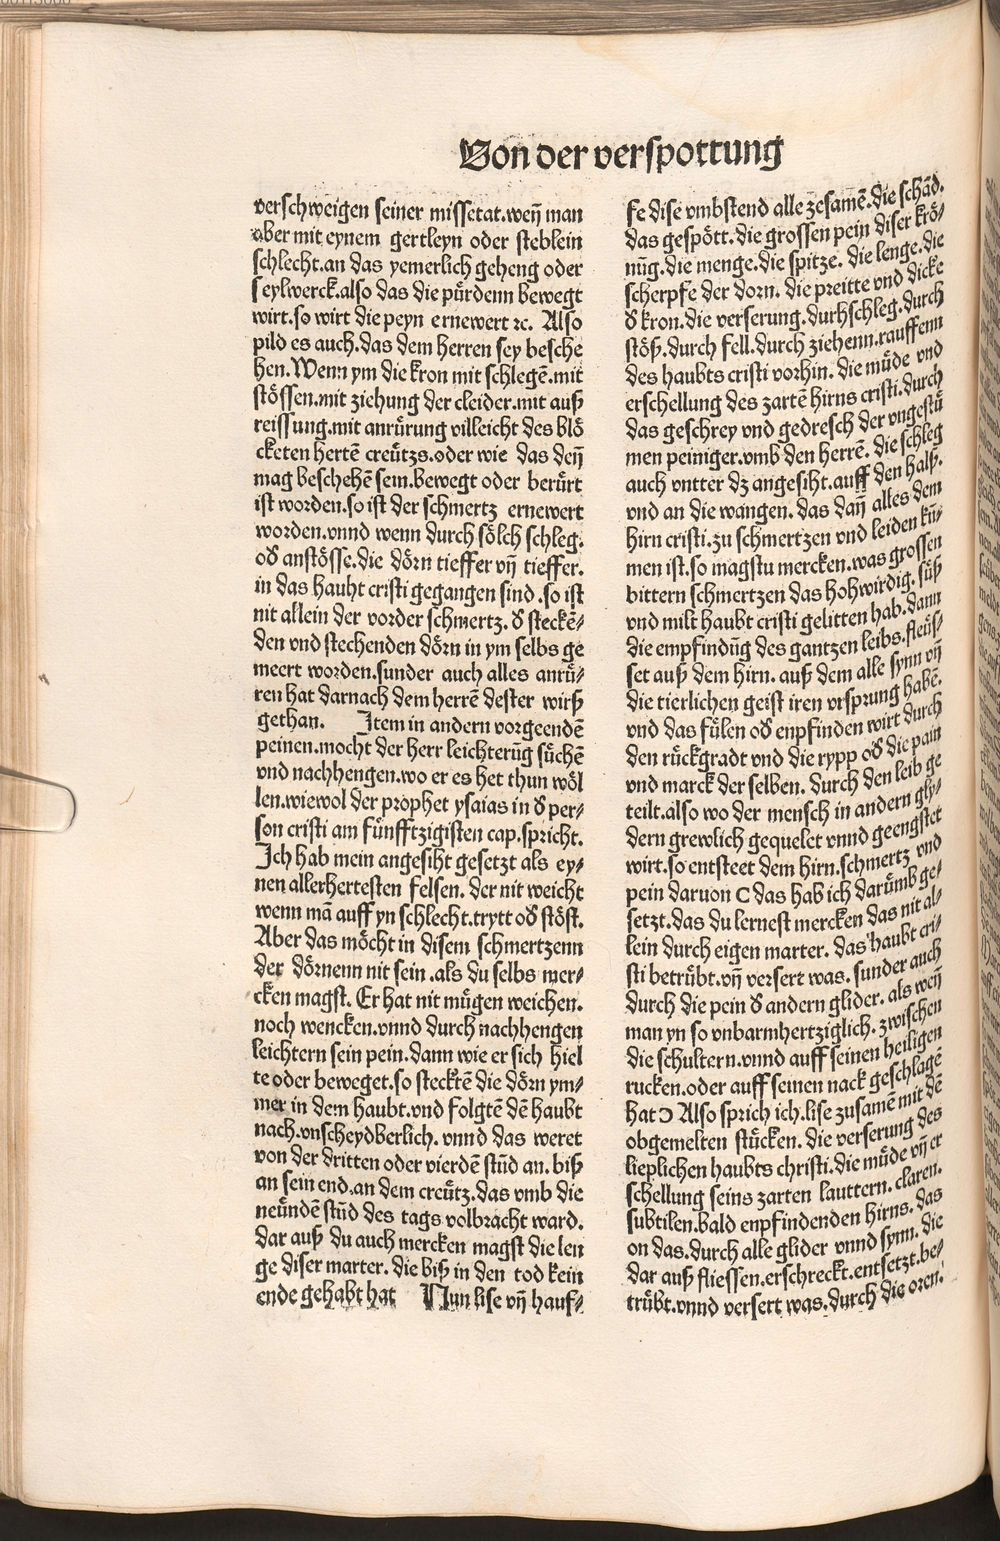 Von der verspottung
verschweigen seiner missetat.weñ man
aber mit eynem gertleyn oder steblein
schlecht.an das yemerlich geheng oder
seylwerck.also das die pürdenn bewegt
wirt.so wirt die peyn ernewert ⁊c. Also
pild es auch.das dem herren sey besche
hen.Wenn ym die kron mit schlegē.mit
stössen.mit ziehung der cleider.mit auß
reissung.mit anrürung villeicht des blö
cketen hertē creützs.oder wie das deñ
mag beschehē sein.bewegt oder berürt
ist worden.so ist der schmertz ernewert
worden.vnnd wenn durch sölch schleg.
oď anstösse.die dörn tieffer vñ tieffer.
in das hauht cristi gegangen sind.so ist
nit allein der vorder schmertz.ď steckē⸗
den vnd stechenden dörn in ym selbs ge
meert worden.sunder auch alles anrü⸗
ren hat darnach dem herrē dester wirß
gethan. Item in andern vorgeendē
peinen.mocht der herr leichterūg süchē
vnd nachhengen.wo er es het thun wöl
len.wiewol der prophet ysaias in ď per⸗
son cristi am fünfftzigisten cap.spricht.
Ich hab mein angesiht gesetzt als ey⸗
nen allerhertesten felsen. der nit weicht
wenn mā auff yn schlecht.trytt oď stöst.
Aber das möcht in disem schmertzenn
der dörnenn nit sein.als du selbs mer⸗
cken magst. Er hat nit mügen weichen.
noch wencken.vnnd durch nachhengen
leichtern sein pein.dann wie er sich hiel
te oder beweget.so stecktē die dörn ym⸗
mer in dem haubt.vnd folgtē dē haubt
nach.vnscheydberlich. vnnd das weret
von der dritten oder vierdē stūd an. biß
an sein end.an dem creütz.das vmb die
neündē stūd des tags volbracht ward.
dar auß du auch mercken magst die len
ge diser marter. die biß in den tod kein
ende gehabt hat Nun lise vñ hauf⸗
fe dise vmbstend alle zesamē.die schād.
das gespött.die grossen pein diser krö⸗
nūg.die menge.die spitze. die lenge.die
scherpfe der dorn. die preitte vnd dicke
ď kron.die verserung.durhschleg.durch
stöß.durch fell.durch ziehenn.rauffenn
des haubts cristi vorhin. die müde vnd
erschellung des zartē hirns cristi.durch
das geschrey vnd gedresch der vngestü
men peiniger.vmb den herrē. die schleg
auch vntter dz angesiht.auff den halß.
vnd an die wangen. das dañ alles dem
hirn cristi.zu schmertzen vnd leiden kū⸗
men ist.so magstu mercken.was grossen
bittern schmertzen das hohwirdig. süß
vnd milt haubt cristi gelitten hab.dann
die empfindūg des gantzen leibs.fleüs⸗
set auß dem hirn. auß dem alle synn vñ
die tierlichen geist iren vrsprung habē.
vnd das fülen oď enpfinden wirt durch
den rückgradt vnd die rypp oď die pain
vnd marck der selben. durch den leib ge
teilt.also wo der mensch in andern gly⸗
dern grewlich gequelet vnnd geengstet
wirt.so entsteet dem hirn.schmertz vnd
pein daruon C das hab ich darūmb ge⸗
setzt.das du lernest mercken das nit al⸗
lein durch eigen marter. das haubt cri⸗
sti betrübt.vñ versert was. sunder auch
durch die pein ď andern glider. als weñ
man yn so vnbarmhertziglich. zwischen
die schultern.vnnd auff seinen heiligen
rucken.oder auff seinen nack geschlagē
hat Ɔ Also sprich ich.lise zusamē mit dē
obgemelten stücken. die verserung des
lieplichen haubts christi.die müde vñ er
schellung seins zarten lauttern. claren.
subtilen.bald enpfindenden hirns. das
on das.durch alle glider vnnd synn. die
dar auß fliessen.erschreckt.entsetzt.be⸗
trübt.vnnd versert was.durch die oren.